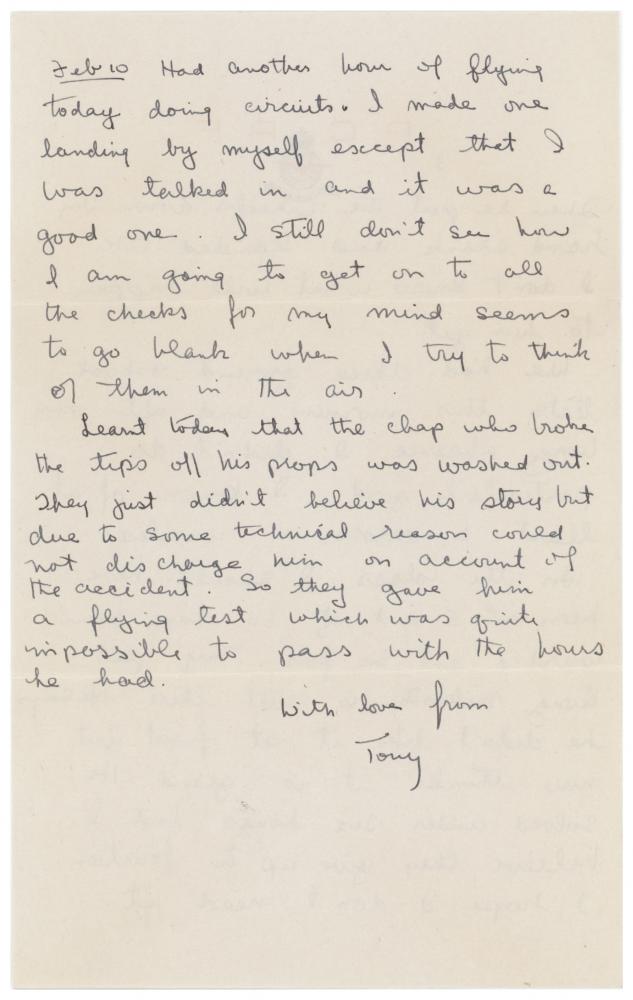 Feb 10 Had another hour of flying
today doing circuits. I made one
landing by myself except that I
was talked in and it was a
good one. I still don't see how
I am going to get on to all
the checks for my mind seems
to go blank when I try to think
of them in the air.
Learnt today that the chap who broke
the tips off his props was washed out.
They just didn't believe his story but
due to some technical reason could
not discharge him on account of
the accident. So they gave him
a flying test which was quite
impossible to pass with the hours
he had.
With love from
Tony